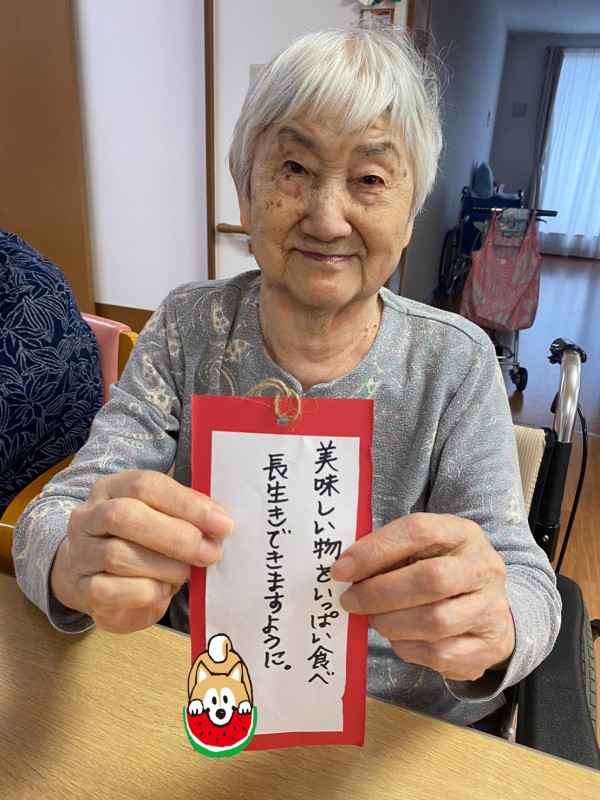 美味しい物をいっぱい食べ
長生きできますように。